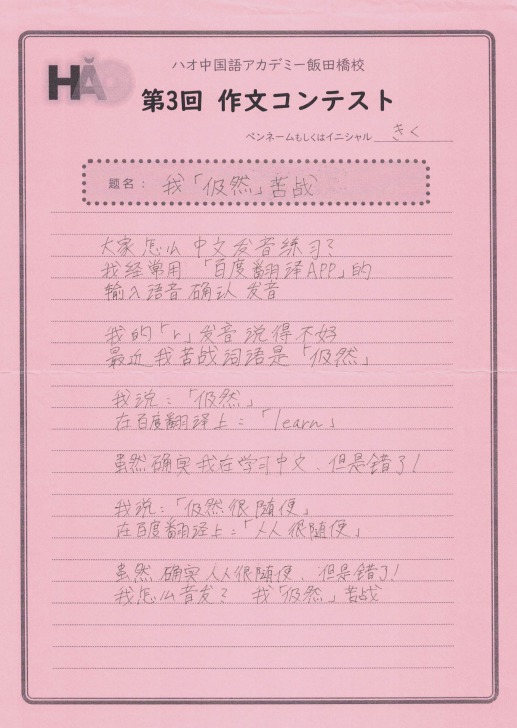 HǍO
ハオ中国語アカデミー飯田橋校
第3回 作文コンテスト
ペンネームもしくはイニシャル きく
题名: 我「仮然」苦战
大家怎么中文发音练习?
我经常用 「百度翻译APP」的
输入语音确认发音
我的「r」发音说得不好
最近我苦战词语是「仮然」
我说:「仮然」
在百度翻译上:「learn」
虽然确实我在学习中文、但是错了!
我说:「仮然很随便」
在百度翻译上:「人人很随便」
虽然 确实人人很随便、但是错了!
我怎么音发? 我「仮然」苦战